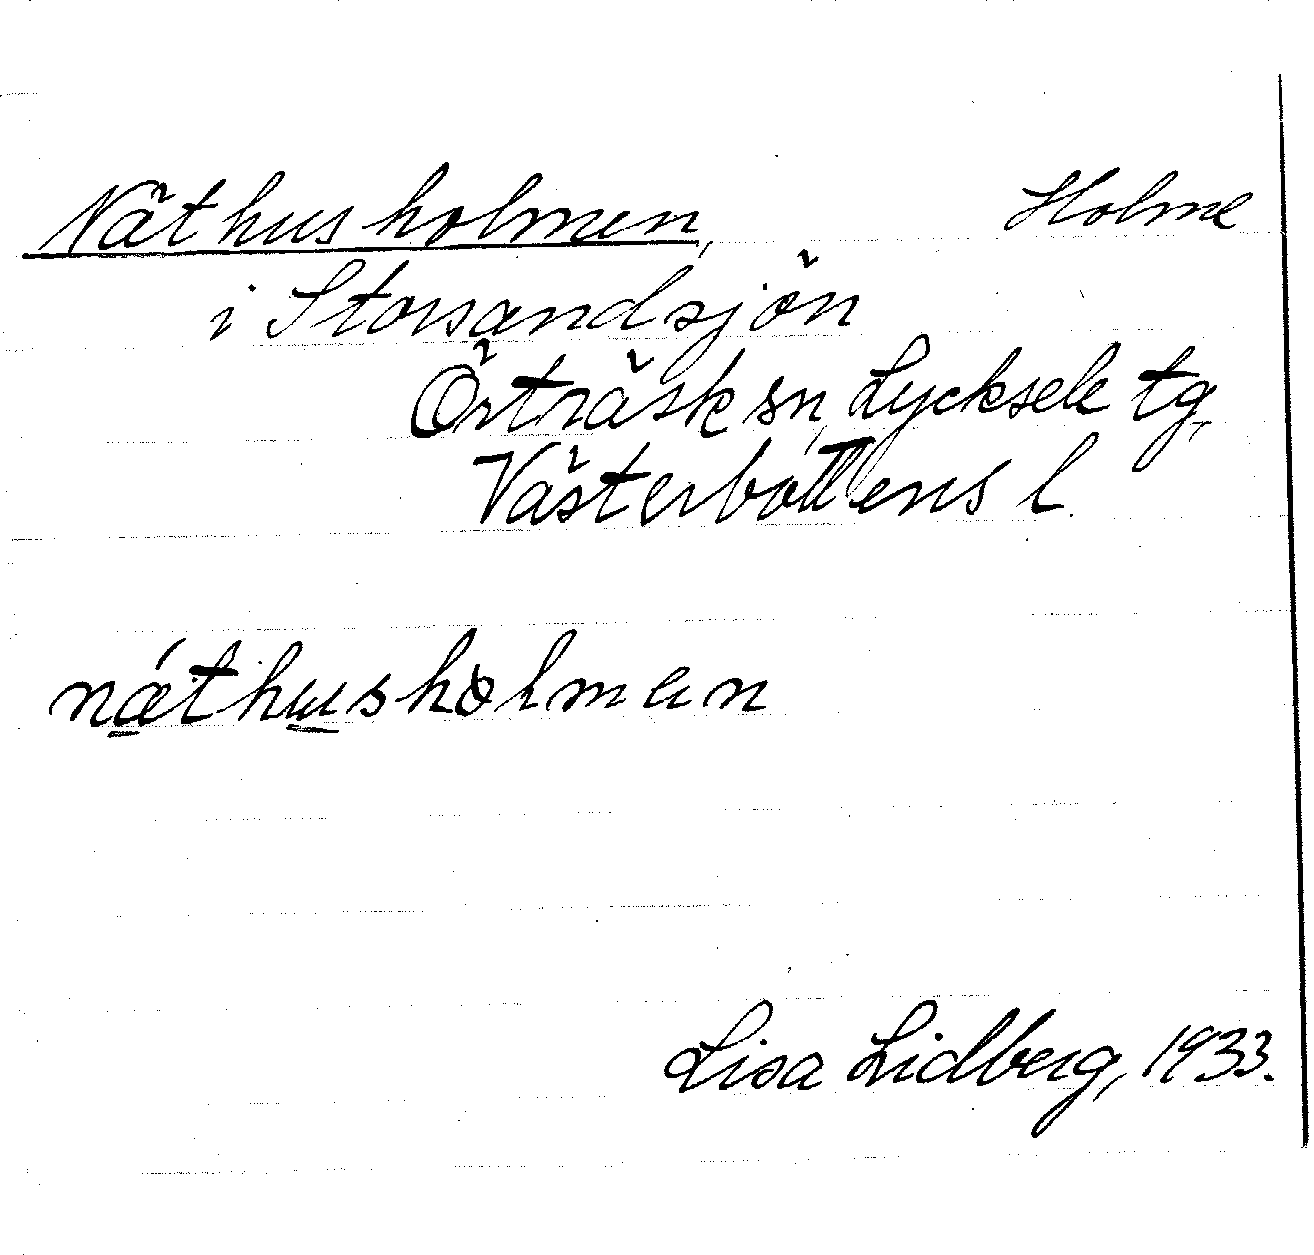 Näthusholmen, Holme
i Storsandsjön
Örträsk sn, Lycksele tg,
Västerbottens l.
nǽthusholmen
Lisa Lidberg, 1933.